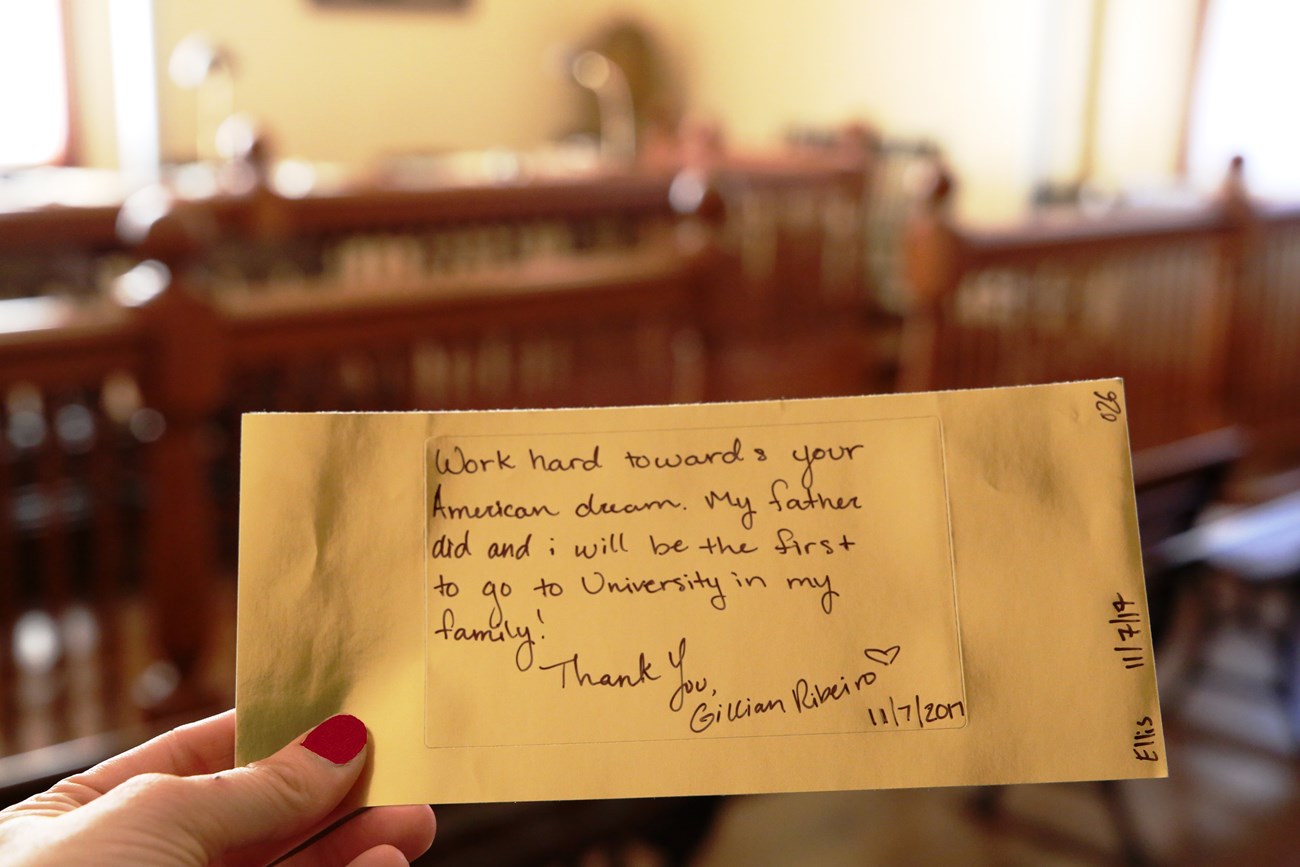 Work hard towards your
American dream. My father
did and i will be the first
to go to University in my
family!
Thank You,
Gillian Ribeiro
11/7/2017
026
11/7/17
Ellis